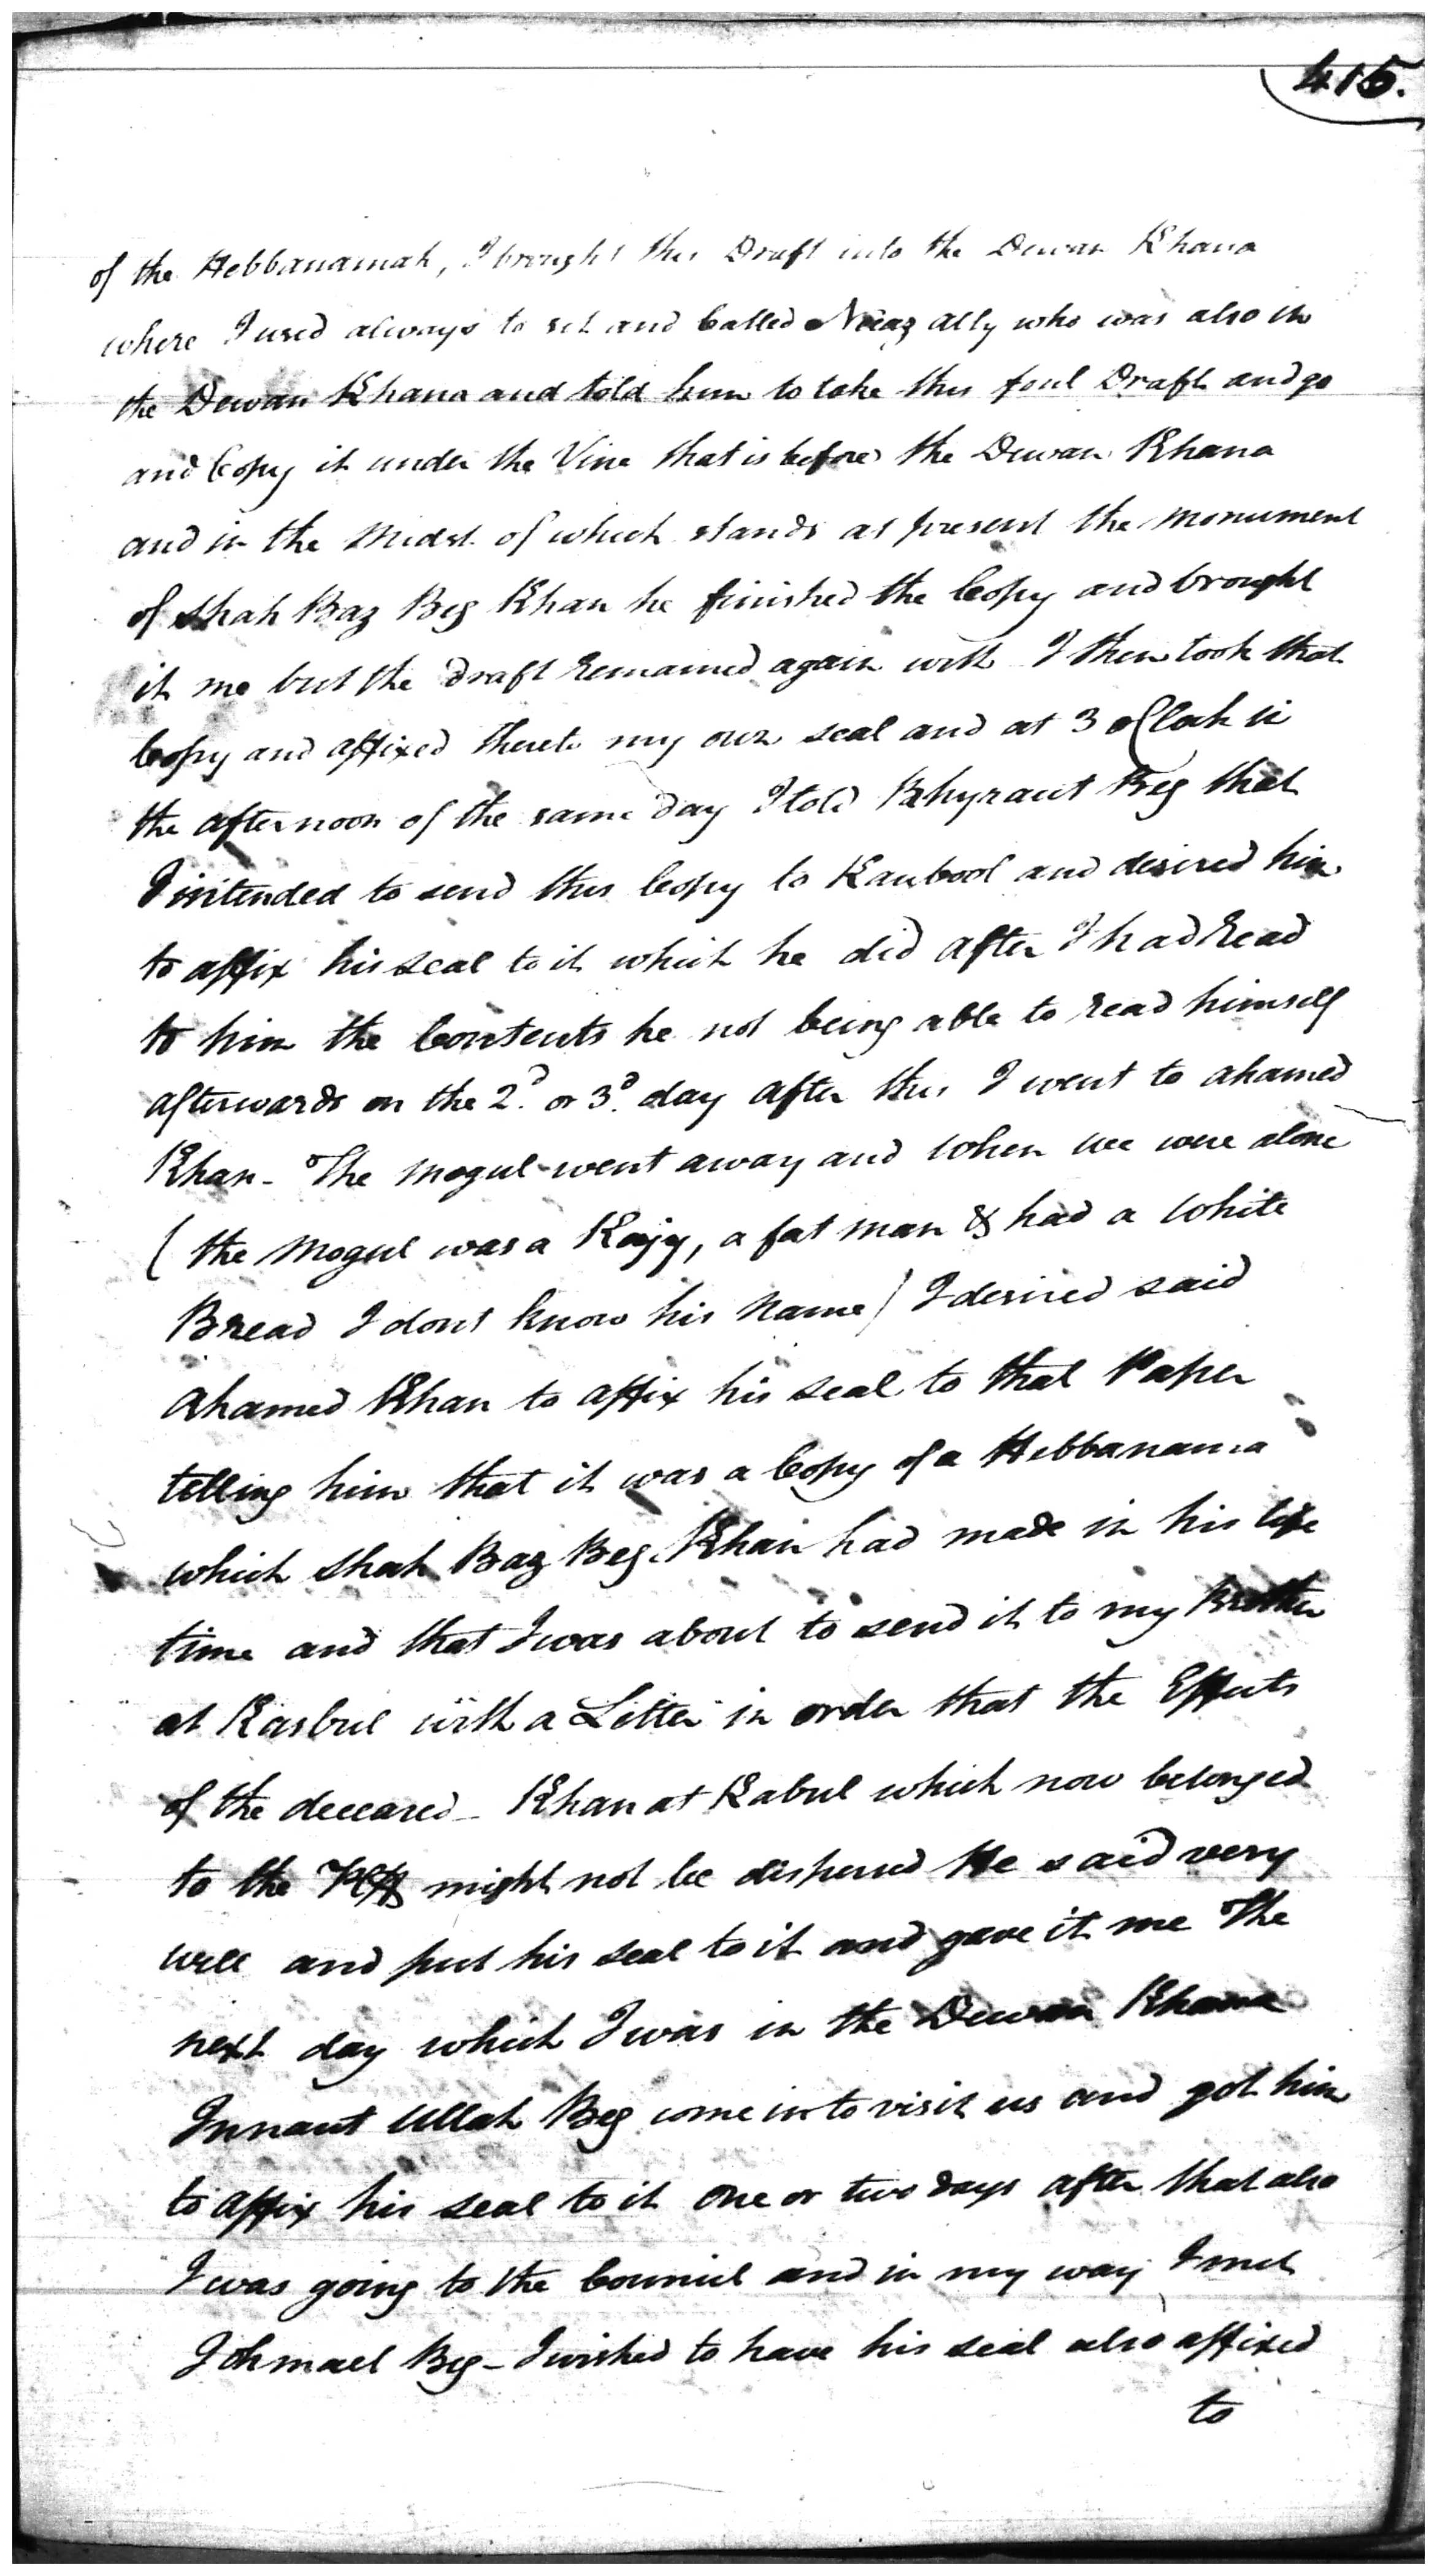 415.
of the Hebbanamah, I brought this Draft into the Dewan Khana
where I used always to sit and Called Neeaz Ally who was also in
the Dewan Khana and told him to take this foul Draft and go
and Copy it under the Vine that is before the Dewan Khana
and in the Midst of which stands at present the Monument
of Shah Baz Beg Khan he finished the Copy and brought
it me but the Draft remained again with I then took that
Copy and affixed thereto my own seal and at 3 oClock in
the afternoon of the same day I told Khyraut Beg that
I intended to send this Copy to Kaubool and desired him
to affix his seal to it which he did after I had read
to him the Contents he not being able to read himself
afterwards on the 2d. or 3d. day after this I went to Ahamed
Khan - The Mogul went away and when we were alone
( the Mogul was a Kajy, a fat man & had a white
Bread I dont know his Name ) I desired said
Ahamed Khan to affix his seal to that Paper
telling him that it was a Copy of a Hebbanama
which Shah Baz Beg Khan had made in his life
time and that I was about to send it to my Brother
at Kasbul with a Letter in order that the Effects
of the deceased - Khan at Kabul which now belonged
to the might not be dispersed He said very
well and put his seal to it and gave it me The
next day which I was in the Dewan Khana
Innaut Ullah Beg come in to visit us and got him
to affix his seal to it one or two days after that also
I was going to the Council and in my way I met
Ishmael Beg - I wished to have his seal also affixed
to